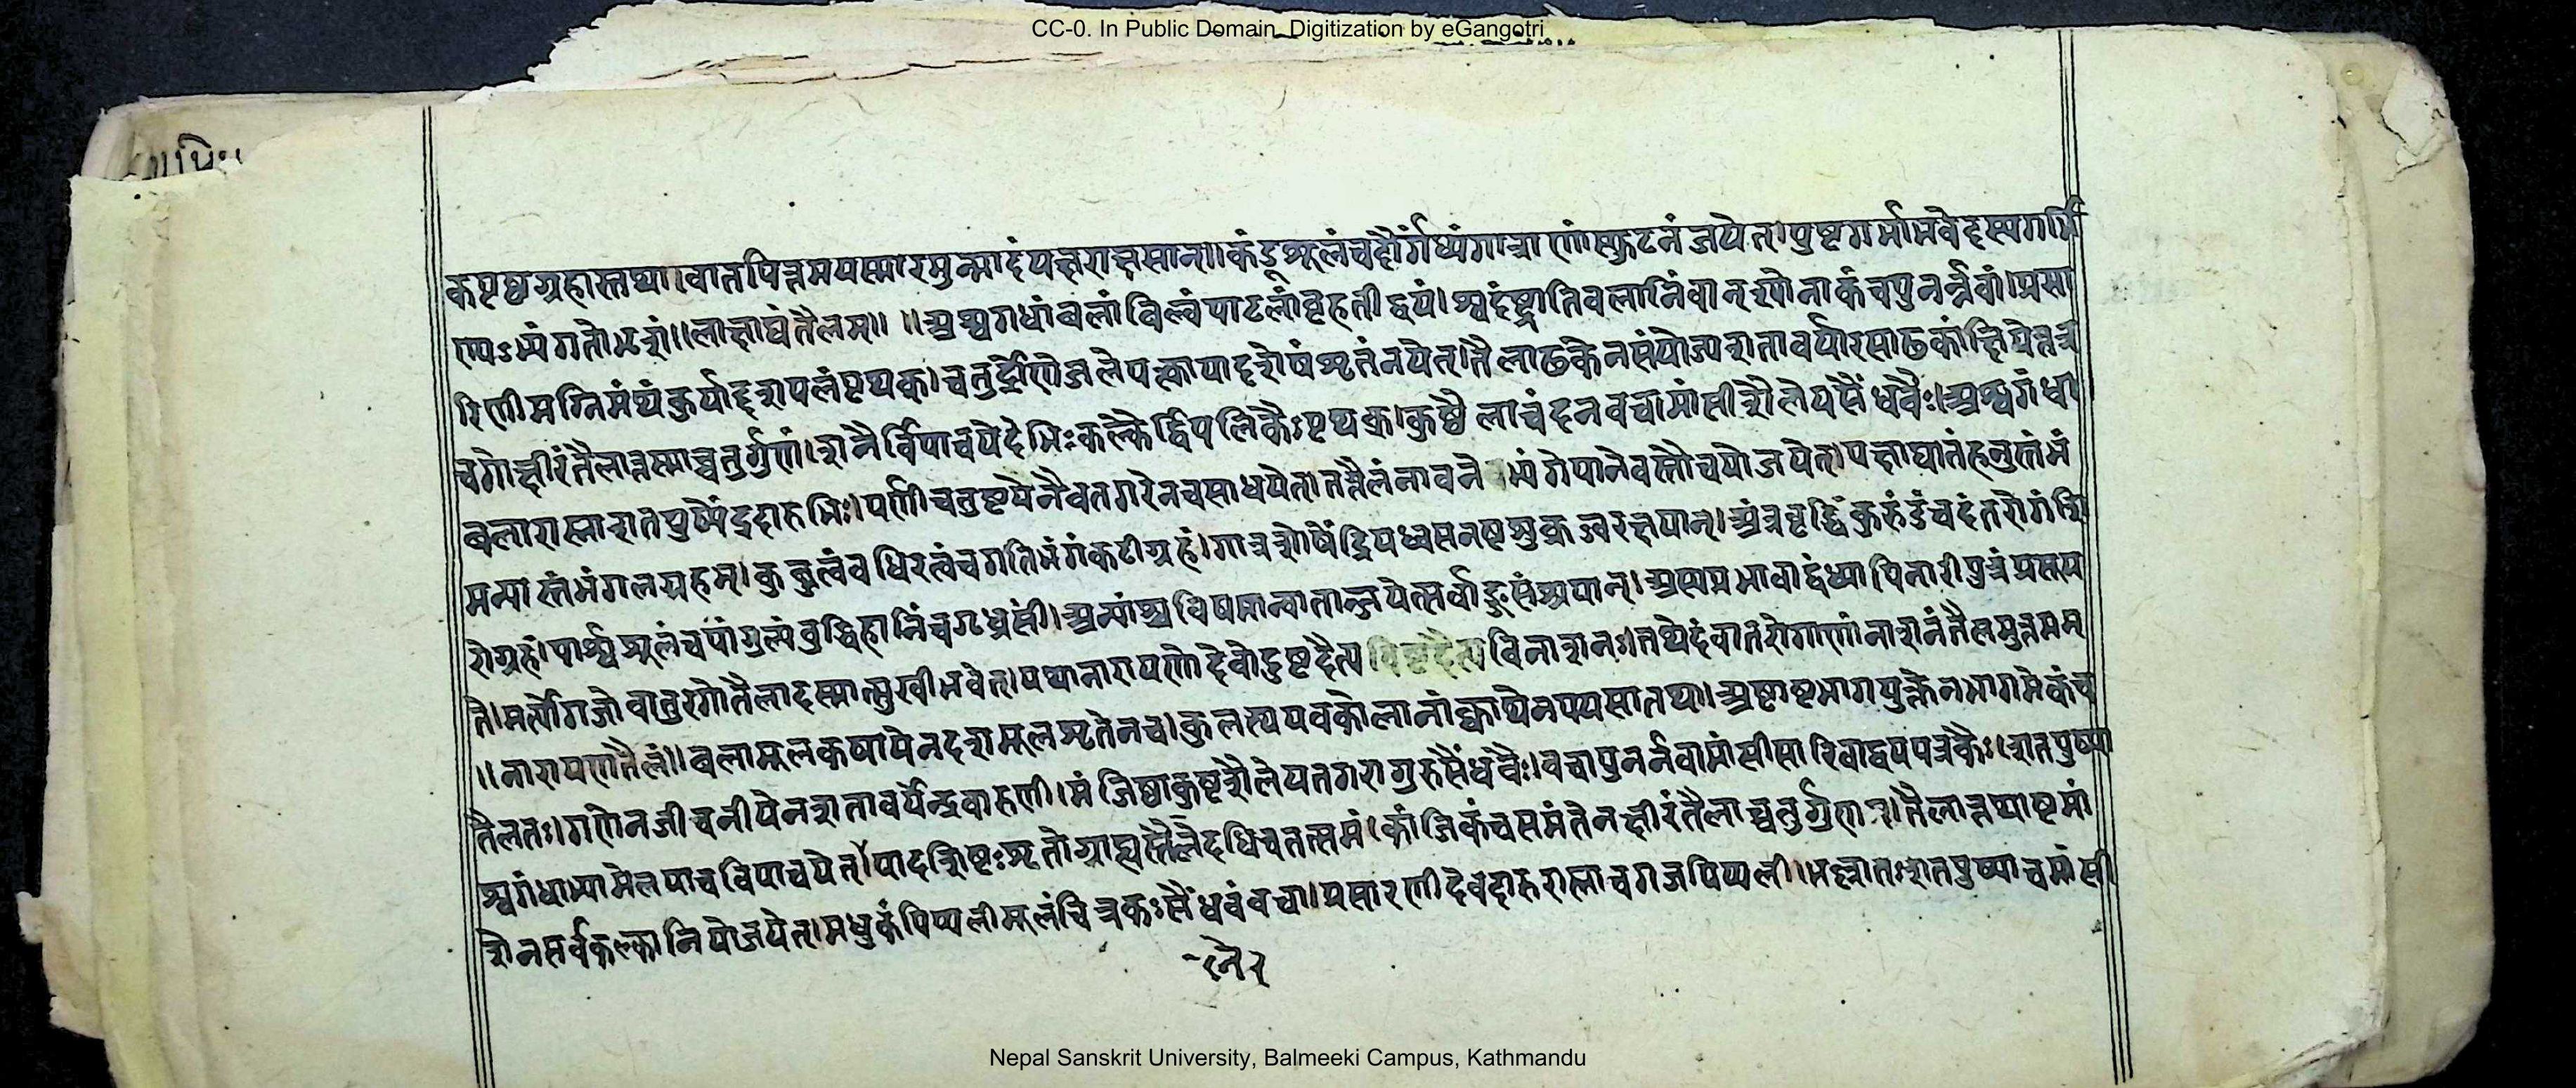 CC-0. In Public Domain. Digitization by eGangotri
कपृष्ठग्रहास्तथा।वातपित्तमपस्मारमुन्मादंयक्षराक्षसान्॥कंडूशूलंचदौर्गंध्यंगात्राणांस्फुटनंजयेत्।पुष्टगर्भाभवेदस्यगर्भि
ण्यऽभ्यंगतोभृशं॥लाक्षाद्यंतैलम्॥ ॥अश्वगधांबलांबिल्वंपाटलांबृहतीद्वयं।श्वदंष्ट्रातिबलानिंबान्श्योनाकंचपुनर्न्नवां।प्रसा
रिणीमग्निमंथंकुर्याद्दशपलंपृथक्।चतुर्द्रोणेजलेपक्त्वापादशेषंशृतंनयेत्।तैलाढकेनसंयोज्यशतावर्यारसाढकंक्षिपेत्तत्र
चगोक्षीरंतैलात्तस्माच्चतुर्गुणं।शनैर्विपाचयेदेभिःकल्कैर्द्विपलिकैःपृथक्।कुष्ठैलाचंदनवचामांसीशैलेयसैंधवैः।अश्वगंधा
बलारास्नाशतपुष्पेंद्रदारुभिः।पर्णीचतुष्टयेनैवतगरेनचसाधयेत्।तत्तैलंनावनेभ्यंगेपानेवस्तौचयोजयेत्।पक्षाघातंहनुस्तंभं
मन्यास्तंभंगलग्रहम्।कुब्जत्वंबधिरत्वंचगतिभंगंकटीग्रहं।गात्रशोषेंद्रियध्वसनष्टशुक्रज्वरक्षयान्।अंत्रवृद्धिंकुरुंडंचदंतरोगंशि
रोग्रहं।पार्श्वशूलंचपांगुल्यंबुद्धिहानिंचगृध्रसीं।अन्यांश्चविषमान्वातान्जयेत्सर्वाङ्गसंश्रयान्।अस्यप्रभावाद्वंध्यापिनारीपुत्रंप्रसूय
ते।मर्त्योगजोवातुरगोतैलादस्मात्सुखीभवेत्।यथानारायणोदेवोदुष्टदैत्यविनाशनः।तथेदंवातरोगाणांनाशनंतैलमुत्तमम्
॥नारायणतैलं॥बलामूलकषायेनदशमूलशृतेनच।कुलत्थयवकोलानांक्वाथेनपयसातथा।अष्टाष्टभागयुक्तेनभागमेकंच
तैलतः।गणेनजीवनीयेनशतावर्येन्द्रवारुणी।मंजिष्ठाकुष्टशैलेयतगरागुरुसैंधवैः।वचापुनर्नवामांसीसारिवाद्वयपत्रकैः।शतपुष्पा
श्वगंधाभ्यामेलयाचविपाचयेत्।पादशिष्टःशृतोग्राह्यस्तैलंदधिचतत्समं।कांजिकंचसमंतेनक्षीरंतैलाच्चतुर्गुणम्।तैलात्तथाष्टमां
शेनसर्वकल्कानियोजयेत्।मधुकंपिप्पलीमूलंचित्रकःसैंधवंवचा।प्रसारणीदेवदारुरास्नाचगजपिप्पली।भल्लातःशतपुष्पाचमांसी
Nepal Sanskrit University, Balmeeki Campus, Kathmandu